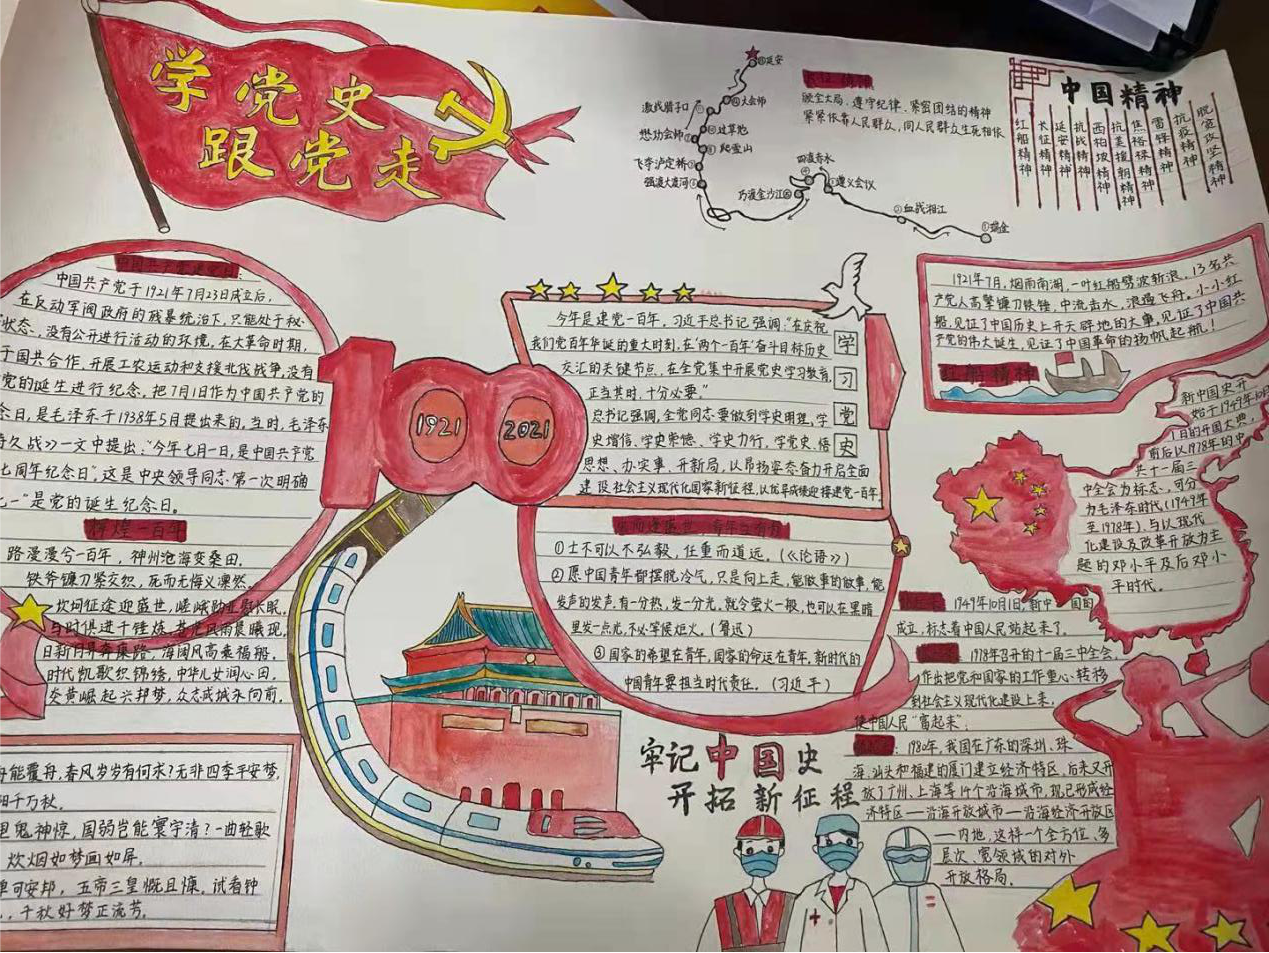 学党史
跟党走
中国共产党于1921年7月23日成立后,
在反动军阀政府的残暴统治下,只能处于秘
状态,没有公开进行活动的环境,在大革命时期,
于国共合作,开展工农运动和支援北伐战争,没有
党的诞生进行纪念,把7月1日作为中国共产党的
念日,是毛泽东于1938年5月提出来的,当时,毛泽东
持久战》一文中提出:"今年七月一日,是中国共产党
七周年纪念日"这是中央领导同志第一次明确
七一"是党的诞生纪念日。
辉煌一百年
路漫漫兮一百年,神州沧海变桑田,
铁斧镰刀紧交织,死而无悔义凛然
坎坷征途迎盛世,嵯峨勋业慰长眠,
与时俱进千锤炼,
日新月异奔康路,海阔风高乘福船,
时代凯歌织锦绣,中华儿女润心田,
炎黄崛起兴邦梦,众志成城永向前,
舟能覆舟,春风岁岁有何求?无非四季平安梦,
阳千万秋。
鬼神惊,国弱岂能寰宇清?一曲轻歌
炊烟如梦画如屏。
可安邦,五帝三皇慨且慷,试看钟
千秋好梦正流芳。
100
1921
2021
⑩延安
⑨大会师
激战腊子口
懋功会师
过草地
爬雪山
飞夺泸定桥
强渡大渡河
巧渡金沙江
四渡赤水
遵义会议
②血战湘江
①瑞金
长征精神
顾全大局、遵守纪律、紧密团结的精神
紧紧依靠人民群众,同人民群众生死相依
中国精神
红船精神
长征精神
延安精神
抗战精神
西柏坡精神
抗美援朝精神
焦裕禄精神
雷锋精神
抗疫精神
脱贫攻坚精神
今年是建党一百年,习近平总书记强调,"在庆祝
我们党百年华诞的重大时刻,在"两个一百年"奋斗目标历史
交汇的关键节点,在全党集中开展党史学习教育,
正当其时,十分必要。"
总书记强调,全党同志要做到学史明理,学
史增信、学史崇德、学史力行,学党史、悟
思想、办实事、开新局,以昂扬姿态奋力开启全面
建设社会主义现代化国家新征程,以优异成绩迎接建党一百年
学
习
党
史
①士不可以不弘毅,任重而道远。(《论语》)
②愿中国青年都摆脱冷气,只是向上走,能做事的做事,能
发声的发声,有一分热,发一分光,就令萤火一般,也可以在黑暗
里发一点光,不必等候炬火。(鲁迅)
③国家的希望在青年,国家的命运在青年,新时代的
中国青年要担当时代责任。(习近平)
1921年7月,烟雨南湖,一叶红船劈波斩浪。13名共
产党人高擎镰刀铁锤,中流击水,浪遏飞舟。小小红
船,见证了中国历史上开天辟地的大事,见证了中国共
产党的伟大诞生,见证了中国革命的扬帆起航!
红船精神
新中国史开
始于1949年10月
1日的开国大典,
前后以1978年的中
共十一届三
中全会为标志,可分
为毛泽东时代(1949年
至1978年),与以现代
化建设及改革开放为主
题的邓小平及后邓小
平时代。
1949年10月1日,新中国的
成立,标志着中国人民站起来了。
1978年召开的十一届三中全会,
作出把党和国家的工作重心转移
到社会主义现代化建设上来,
使中国人民"富起来"。
1980年,我国在广东的深圳、珠
海、汕头和福建的厦门建立经济特区,后来又开
放了广州、上海等14个沿海城市,现已形成经
济特区—沿海开放城市—沿海经济开放区
—内地,这样一个全方位、多
层次、宽领域的对外
开放格局。
牢记中国史
开拓新征程